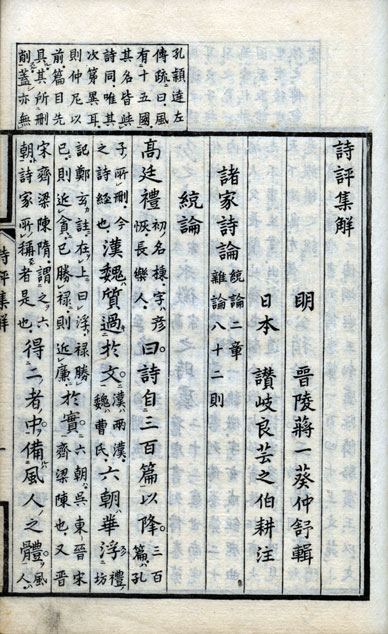 孔穎達左
傳疏曰風
有十五國
其名皆與
詩同唯其
次第異耳
則仲尼以
前篇目先
具其所刪
削蓋亦無
詩評集解
明 晉陵蔣一葵仲舒輯
日本 讃岐良芸之伯耕注
諸家詩論 統論二章 雜論八十二則
統論
高廷禮 初名棅字彦恢長樂人 曰詩自三百篇以降 三百篇孔
子所刪今之詩經也 漢魏質過於文 漢兩漢魏曹氏 六朝華浮 禮坊
記鄭玄註在上曰浮禄勝己則近貪己勝禄則近廉 於實 六朝吳東晉宋齊梁陳也又晉
宋齊梁陳隋謂之六朝詩家所稱者是也 得二者中備風人之體 風人
詩評集解